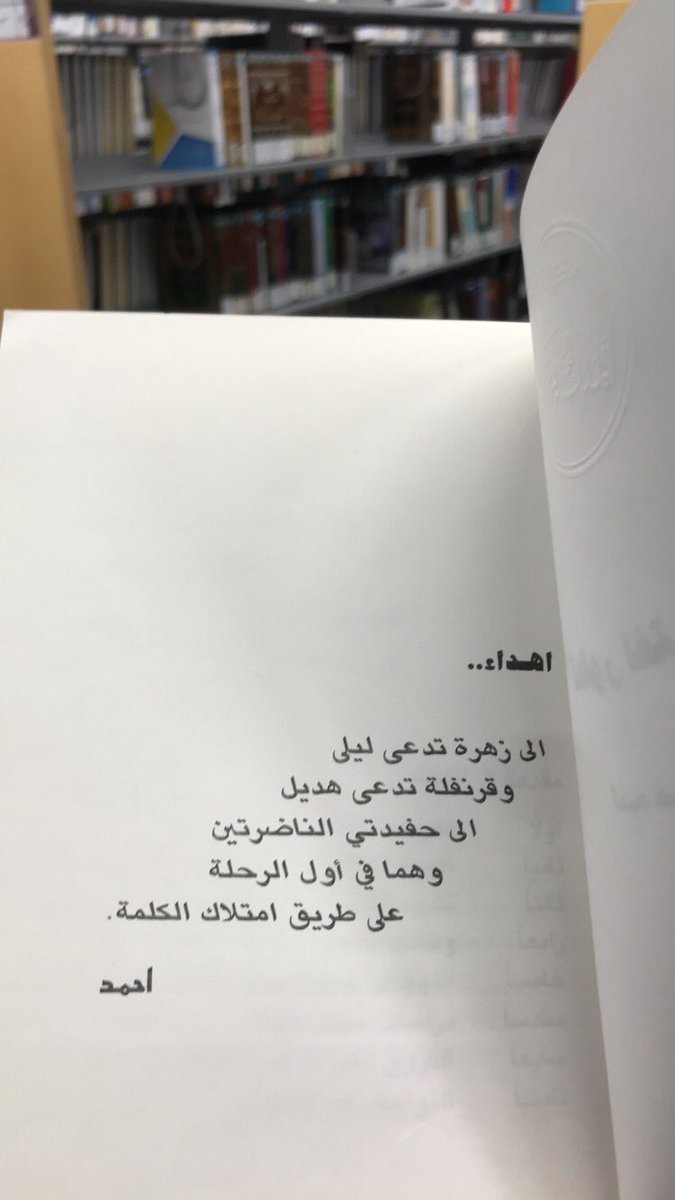 اهداء..
الى زهرة تدعى ليلى
وقرنفلة تدعى هديل
الى حفيدتي الناضرتين
وهما في أول الرحلة
على طريق امتلاك الكلمة.
أحمد